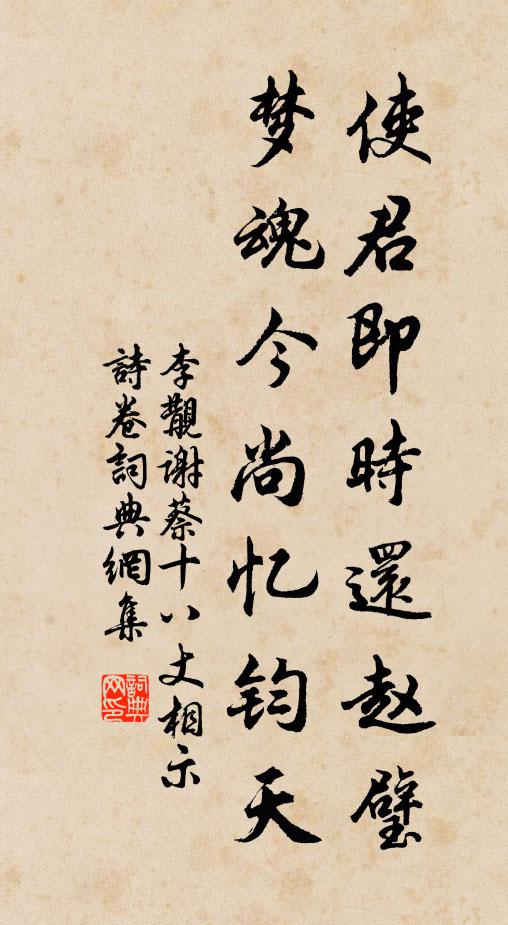 使君即時還赵璧
梦魂今尚忆钧天
李觏谢蔡十八丈相示
詩卷詞典網集
詞典
网印